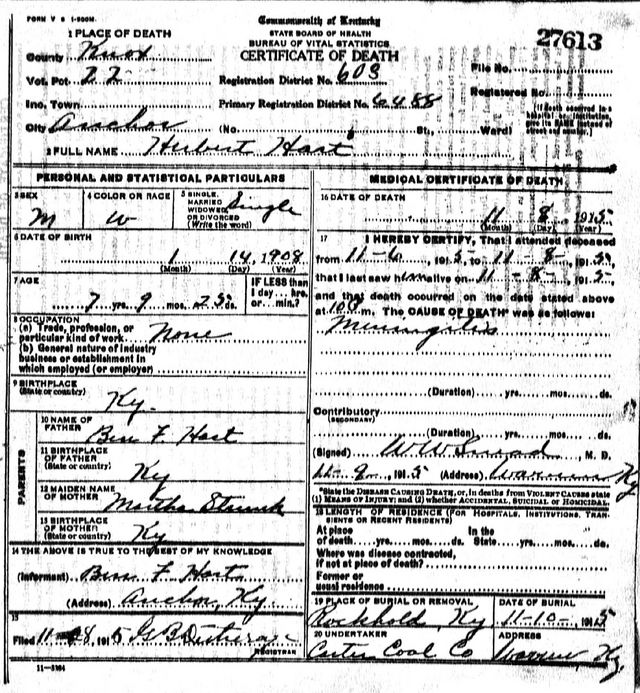 FORM V S 1-500M.
Commonwealth of Kentucky
STATE BOARD OF HEALTH
BUREAU OF VITAL STATISTICS
CERTIFICATE OF DEATH
27613
1 PLACE OF DEATH
County Knox
Vot. Pct. 22
Registration District No. 603
File No.
Inc. Town
Primary Registration District No. 6488
Registered No.
City Anchor (No. St., Ward)
(If death occurred in a hospital or institution, give its NAME instead of street and number.)
2 FULL NAME Hubert Hart
PERSONAL AND STATISTICAL PARTICULARS
3 SEX
M
4 COLOR OR RACE
W
5 SINGLE, MARRIED WIDOWED, OR DIVORCED (Write the word)
Single
6 DATE OF BIRTH
1 14, 1908
(Month) (Day) (Year)
7 AGE
7 yrs. 9 mos. 25 ds.
IF LESS than 1 day... hrs. or... min.?
8 OCCUPATION
(a) Trade, profession, or particular kind of work None
(b) General nature of industry business or establishment in which employed (or employer)
9 BIRTHPLACE
(State or country)
Ky.
PARENTS
10 NAME OF FATHER
Ben F Hart
11 BIRTHPLACE OF FATHER
(State or country)
Ky
12 MAIDEN NAME OF MOTHER
Martha Strunk
13 BIRTHPLACE OF MOTHER
(State or country)
Ky
14 THE ABOVE IS TRUE TO THE BEST OF MY KNOWLEDGE
(Informant) Ben F Hart
(Address) Anchor, Ky
15
Filed 11-8, 1915
REGISTRAR
11-5184
MEDICAL CERTIFICATE OF DEATH
16 DATE OF DEATH
11 8, 1915
(Month) (Day) (Year)
17 I HEREBY CERTIFY, That I attended deceased
from 11-6, 1915, to 11-8-, 1915,
that I last saw him alive on 11-8-, 1915,
and that death occurred on the date stated above
at 10 P m. The CAUSE OF DEATH* was as follows:
Meningitis
(Duration) yrs. mos. ds.
Contributory
(SECONDARY)
(Duration) yrs. mos. ds.
(Signed) W W M. D.
11-9, 1915 (Address) Warren Ky
*State the DISEASE CAUSING DEATH, or, in deaths from VIOLENT CAUSES state
(1) MEANS OF INJURY; and (2) whether ACCIDENTAL, SUICIDAL or HOMICIDAL.
18 LENGTH OF RESIDENCE (FOR HOSPITALS, INSTITUTIONS, TRANSIENTS OR RECENT RESIDENTS)
At place of death yrs. mos. ds. In the State yrs. mos. ds.
Where was disease contracted,
if not at place of death?
Former or
usual residence
19 PLACE OF BURIAL OR REMOVAL
Rockhold, Ky
DATE OF BURIAL
11-10-, 1915
20 UNDERTAKER
Carter Coal Co
ADDRESS
Warren, Ky.